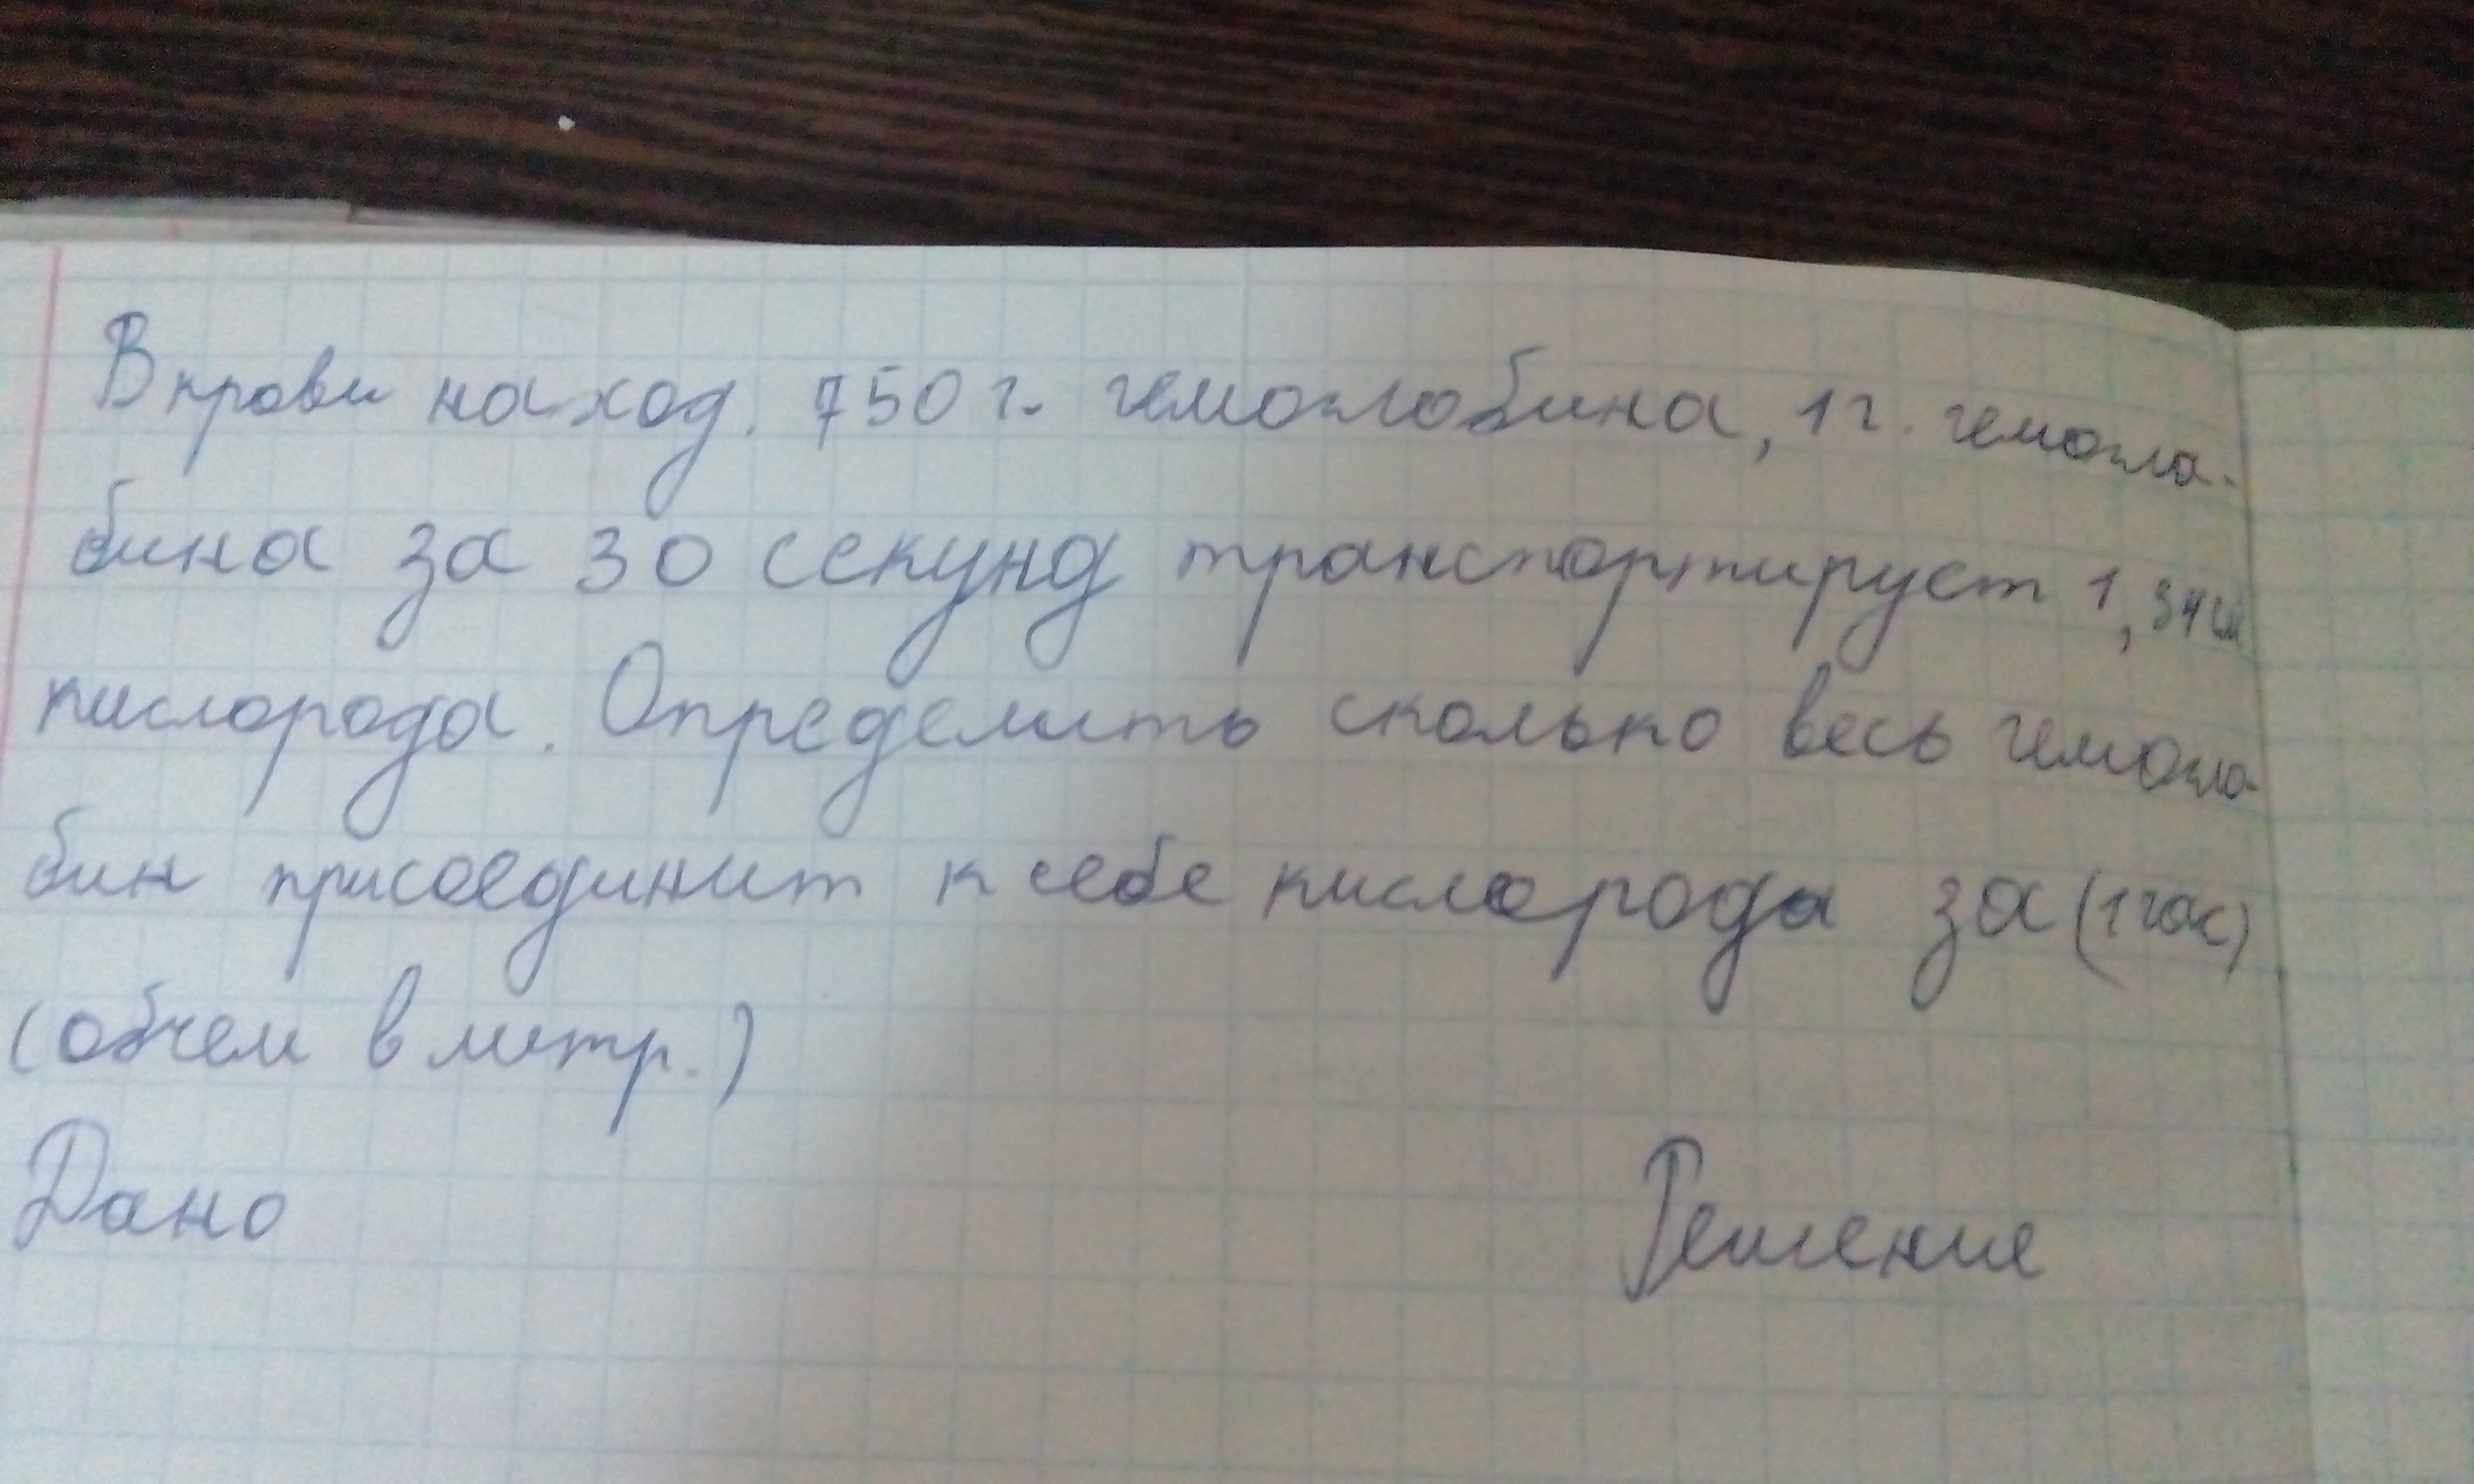 В крови наход. 750 г. гемоглобина, 1 г. гемогла-
бина за 30 секунд транспортирует 1,34 см
кислорода. Определить сколько весь гемогло-
бин присоединит к себе кислорода за (1 час)
(обчем в литр.)
Дано Решение